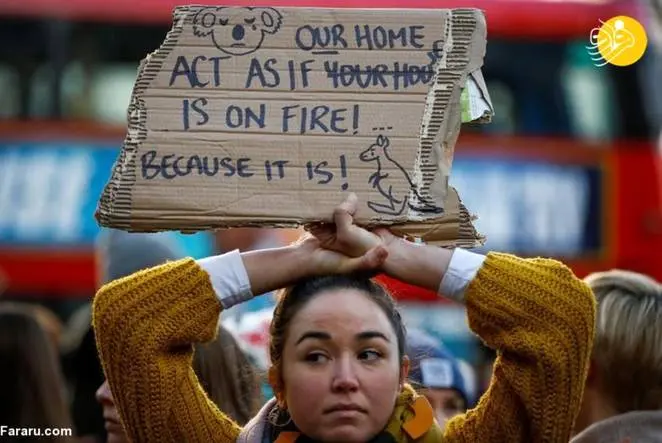 OUR HOME
ACT AS IF YOUR HOUS
IS ON FIRE!
BECAUSE IT IS!
Fararu.com